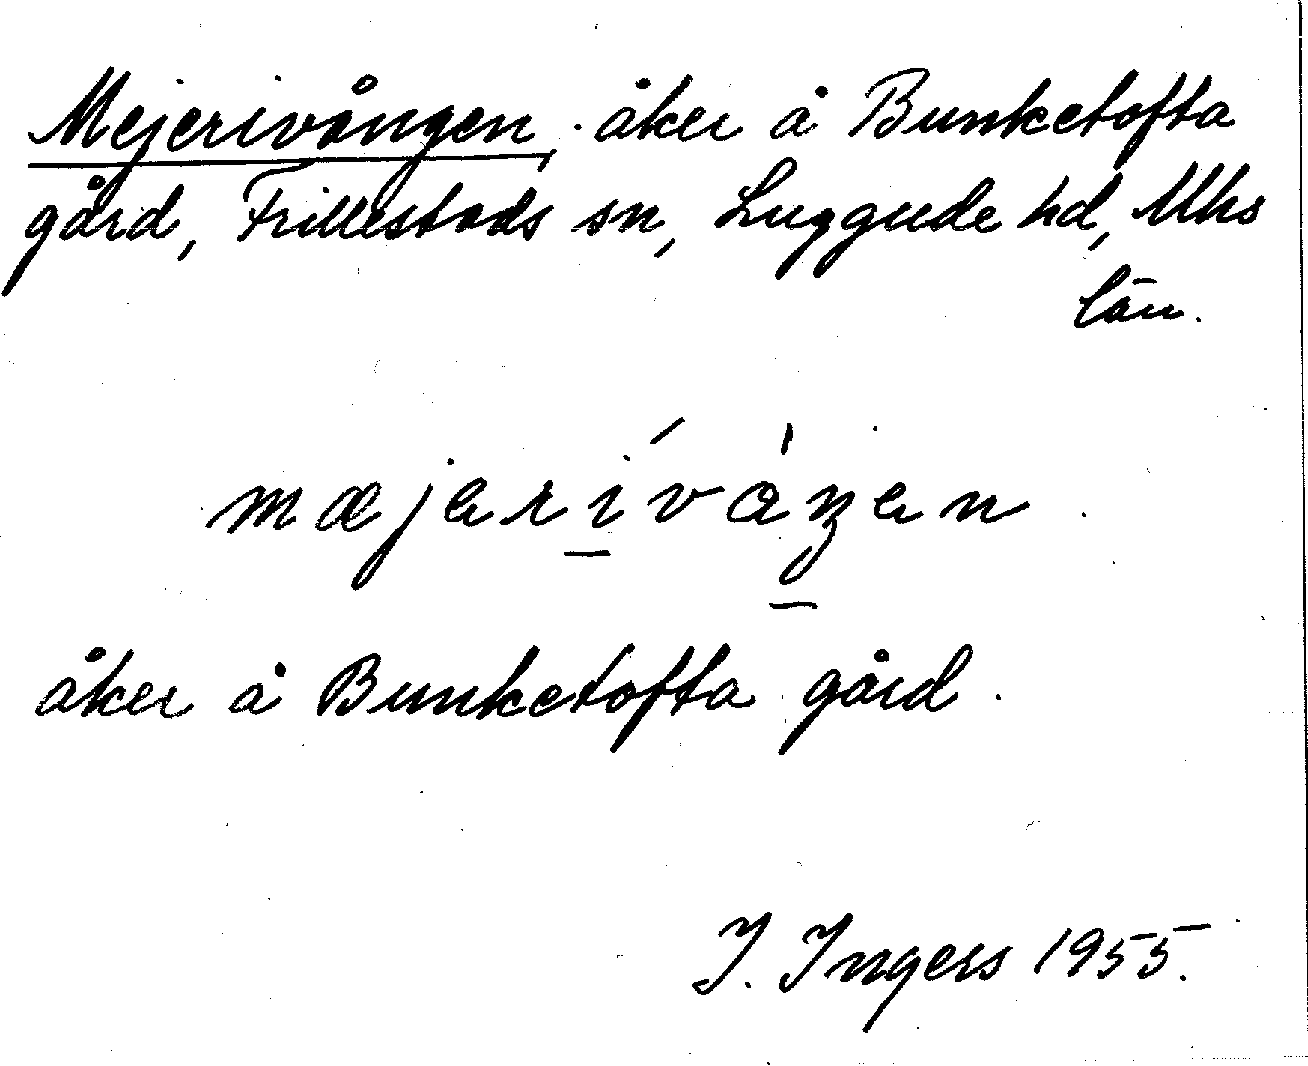 Mejerivången, åker å Bunketofta
gård, Frillestads sn, Luggude hd, Mhs
län.
mæjərívåŋən
åker å Bunketofta gård.
I. Ingers 1955.